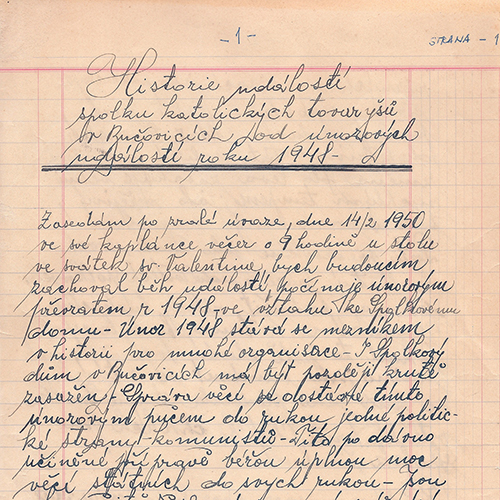 - 1 -
STRANA - 1
Historie událostí
spolku katolických tovaryšů
v Bučovicích od únorových
událostí roku 1948 -
Zasedám po zralé úvaze, dne 14/2 1950
ve své kaplánce večer o 9 hodině u stolu
ve svátek sv. Valentina, bych budoucím
zachoval běh událostí, počínaje únorovým
převratem r 1948 - ve vztahu ke Spolkovému
domu - Únor 1948 stává se mezníkem
v historii pro mnohé organisace - I Spolkový
dům v Bučovicích má být později krutě
zasažen. Správa věcí se dostává tímto
únorovým pučem do rukou jedné politic-
ké strany - komunistů - Tito po dávno
učiněné přípravě běrou úplnou moc
věcí státních do svých rukou - Jsou